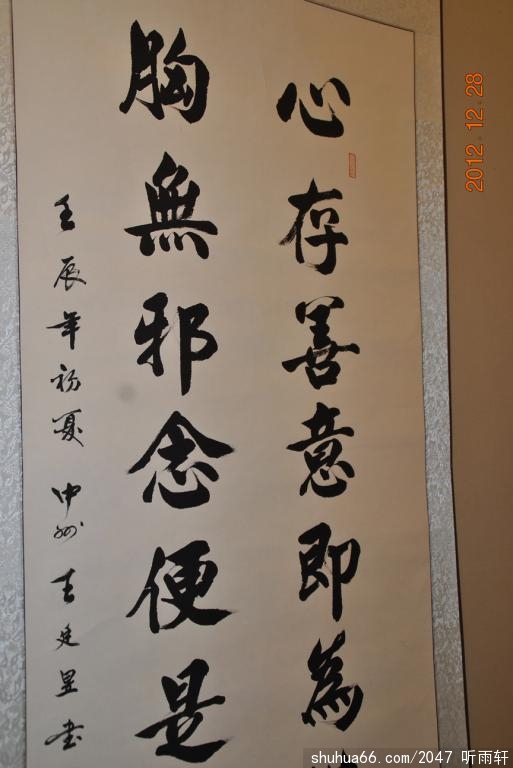 心存善意即為
胸無邪念便是
壬辰年初夏 中州王廷昱书
2012.12.28
shuhua66.com/2047 听雨轩